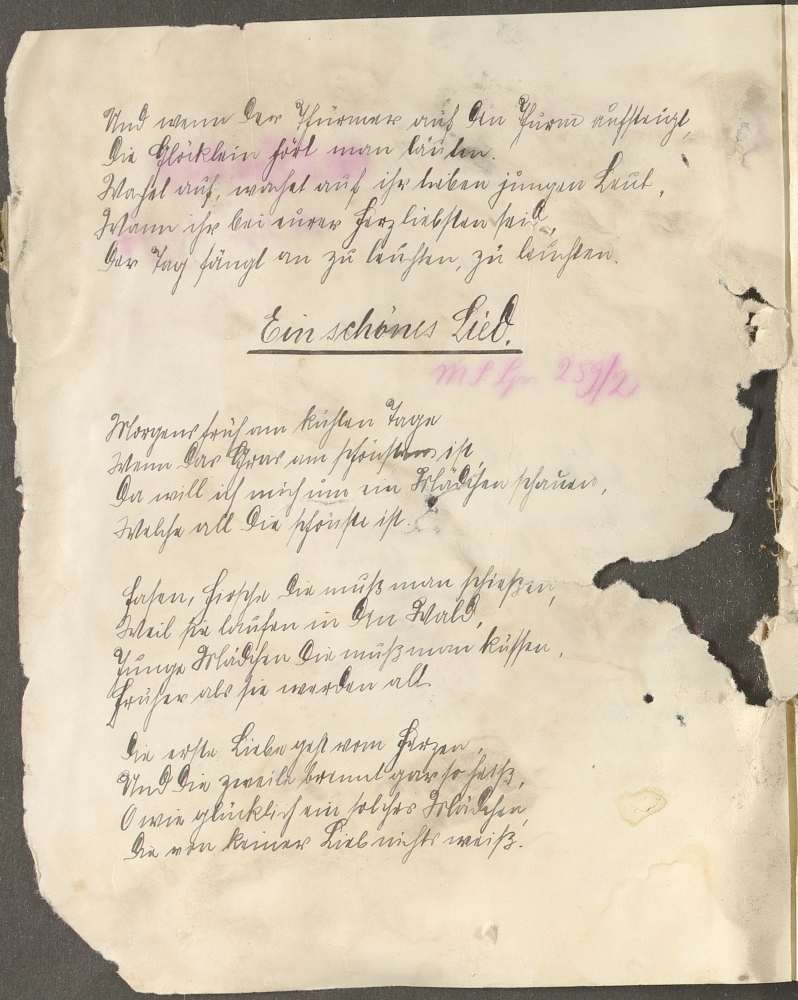 Und wenn der Thürmer auf den Thurm aufsteigt,
Die Glöcklein hört man läuten.
Wachet auf, wachet auf ihr lieben jungen Leut,
Wann ihr bei eurer Herzliebsten seid,
Der Tag fängt an zu leuchten, zu leuchten.
Ein schönes Lied.
259/2
Morgens früh am kühlen Tage
Wenn das Gras am schönsten ist,
Da will ich mich um ein Mädchen schauen,
Welche all die schönste ist.
Hasen, Hirsche die muß man schießen,
Weil sie laufen in den Wald,
Junge Mädchen die muß man küssen,
Früher als sie werden alt.
Die erste Liebe geht vom Herzen,
Und die zweite brennt gar so heiß,
O wie glücklich ein solches Mädchen,
Die von keiner Lieb nichts weiß.